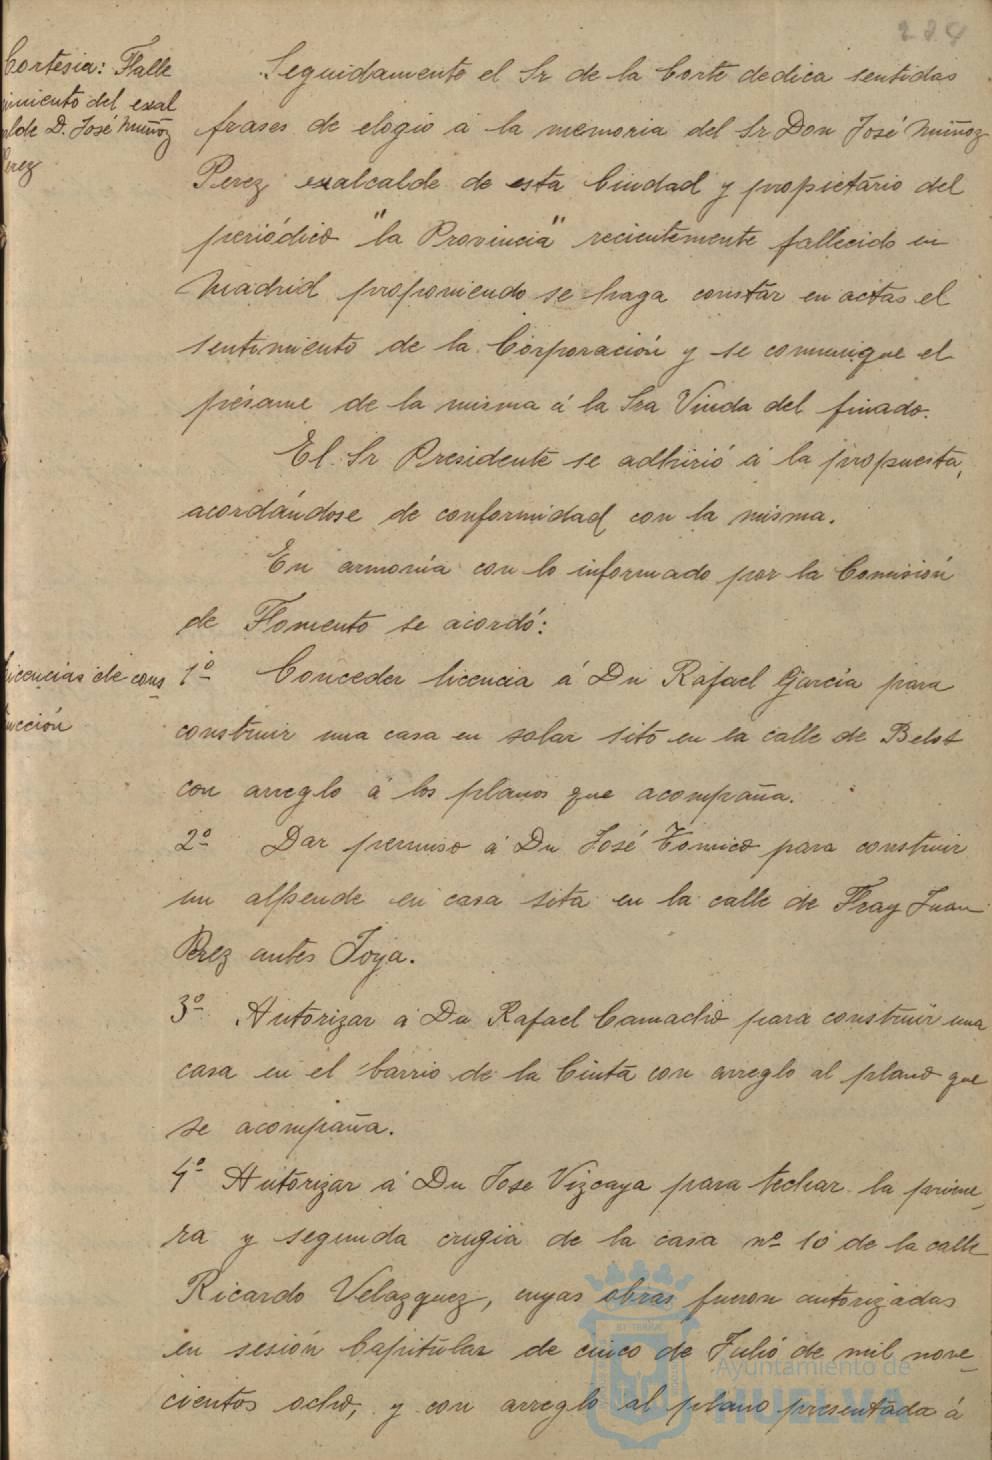 224
Cortesia: Falle
cimiento del exal
alde D. José Muñoz
Perez
Seguidamente el Sr de la Corte dedica sentidas
frases de elogio á la memoria del Sr Don José Muñoz
Perez exalcalde de esta Ciudad y propietario del
periódico "la Provincia" recientemente fallecido en
Madrid proponiendo se haga constar en actas el
sentimiento de la Corporación y se comunique el
pésame de la misma á la Sra Viuda del finado.
El Sr Presidente se adhirió á la propuesta,
acordándose de conformidad con la misma.
En armonía con lo informado por la Comisión
de Fomento se acordó:
Licencias de cons
trucción
1º Conceder licencia á Dn Rafael García para
construir una casa en solar sito en la calle de Belot
con arreglo á los planos que acompaña.
2º Dar permiso á Dn José Tomico para construir
un alpende en casa sita en la calle de Fray Juan
Perez antes Joya.
3º Autorizar á Dn Rafael Camacho para construir una
casa en el barrio de la Cinta con arreglo al plano que
se acompaña.
4º Autorizar á Dn Jose Vizcaya para techar la prime_
ra y segunda crugia de la casa nº 10 de la calle
Ricardo Velazquez, cuyas obras fueron autorizadas
en sesión Capitular de cinco de Julio de mil nove_
cientos ocho, y con arreglo al plano presentada á
Ayuntamiento de
HUELVA